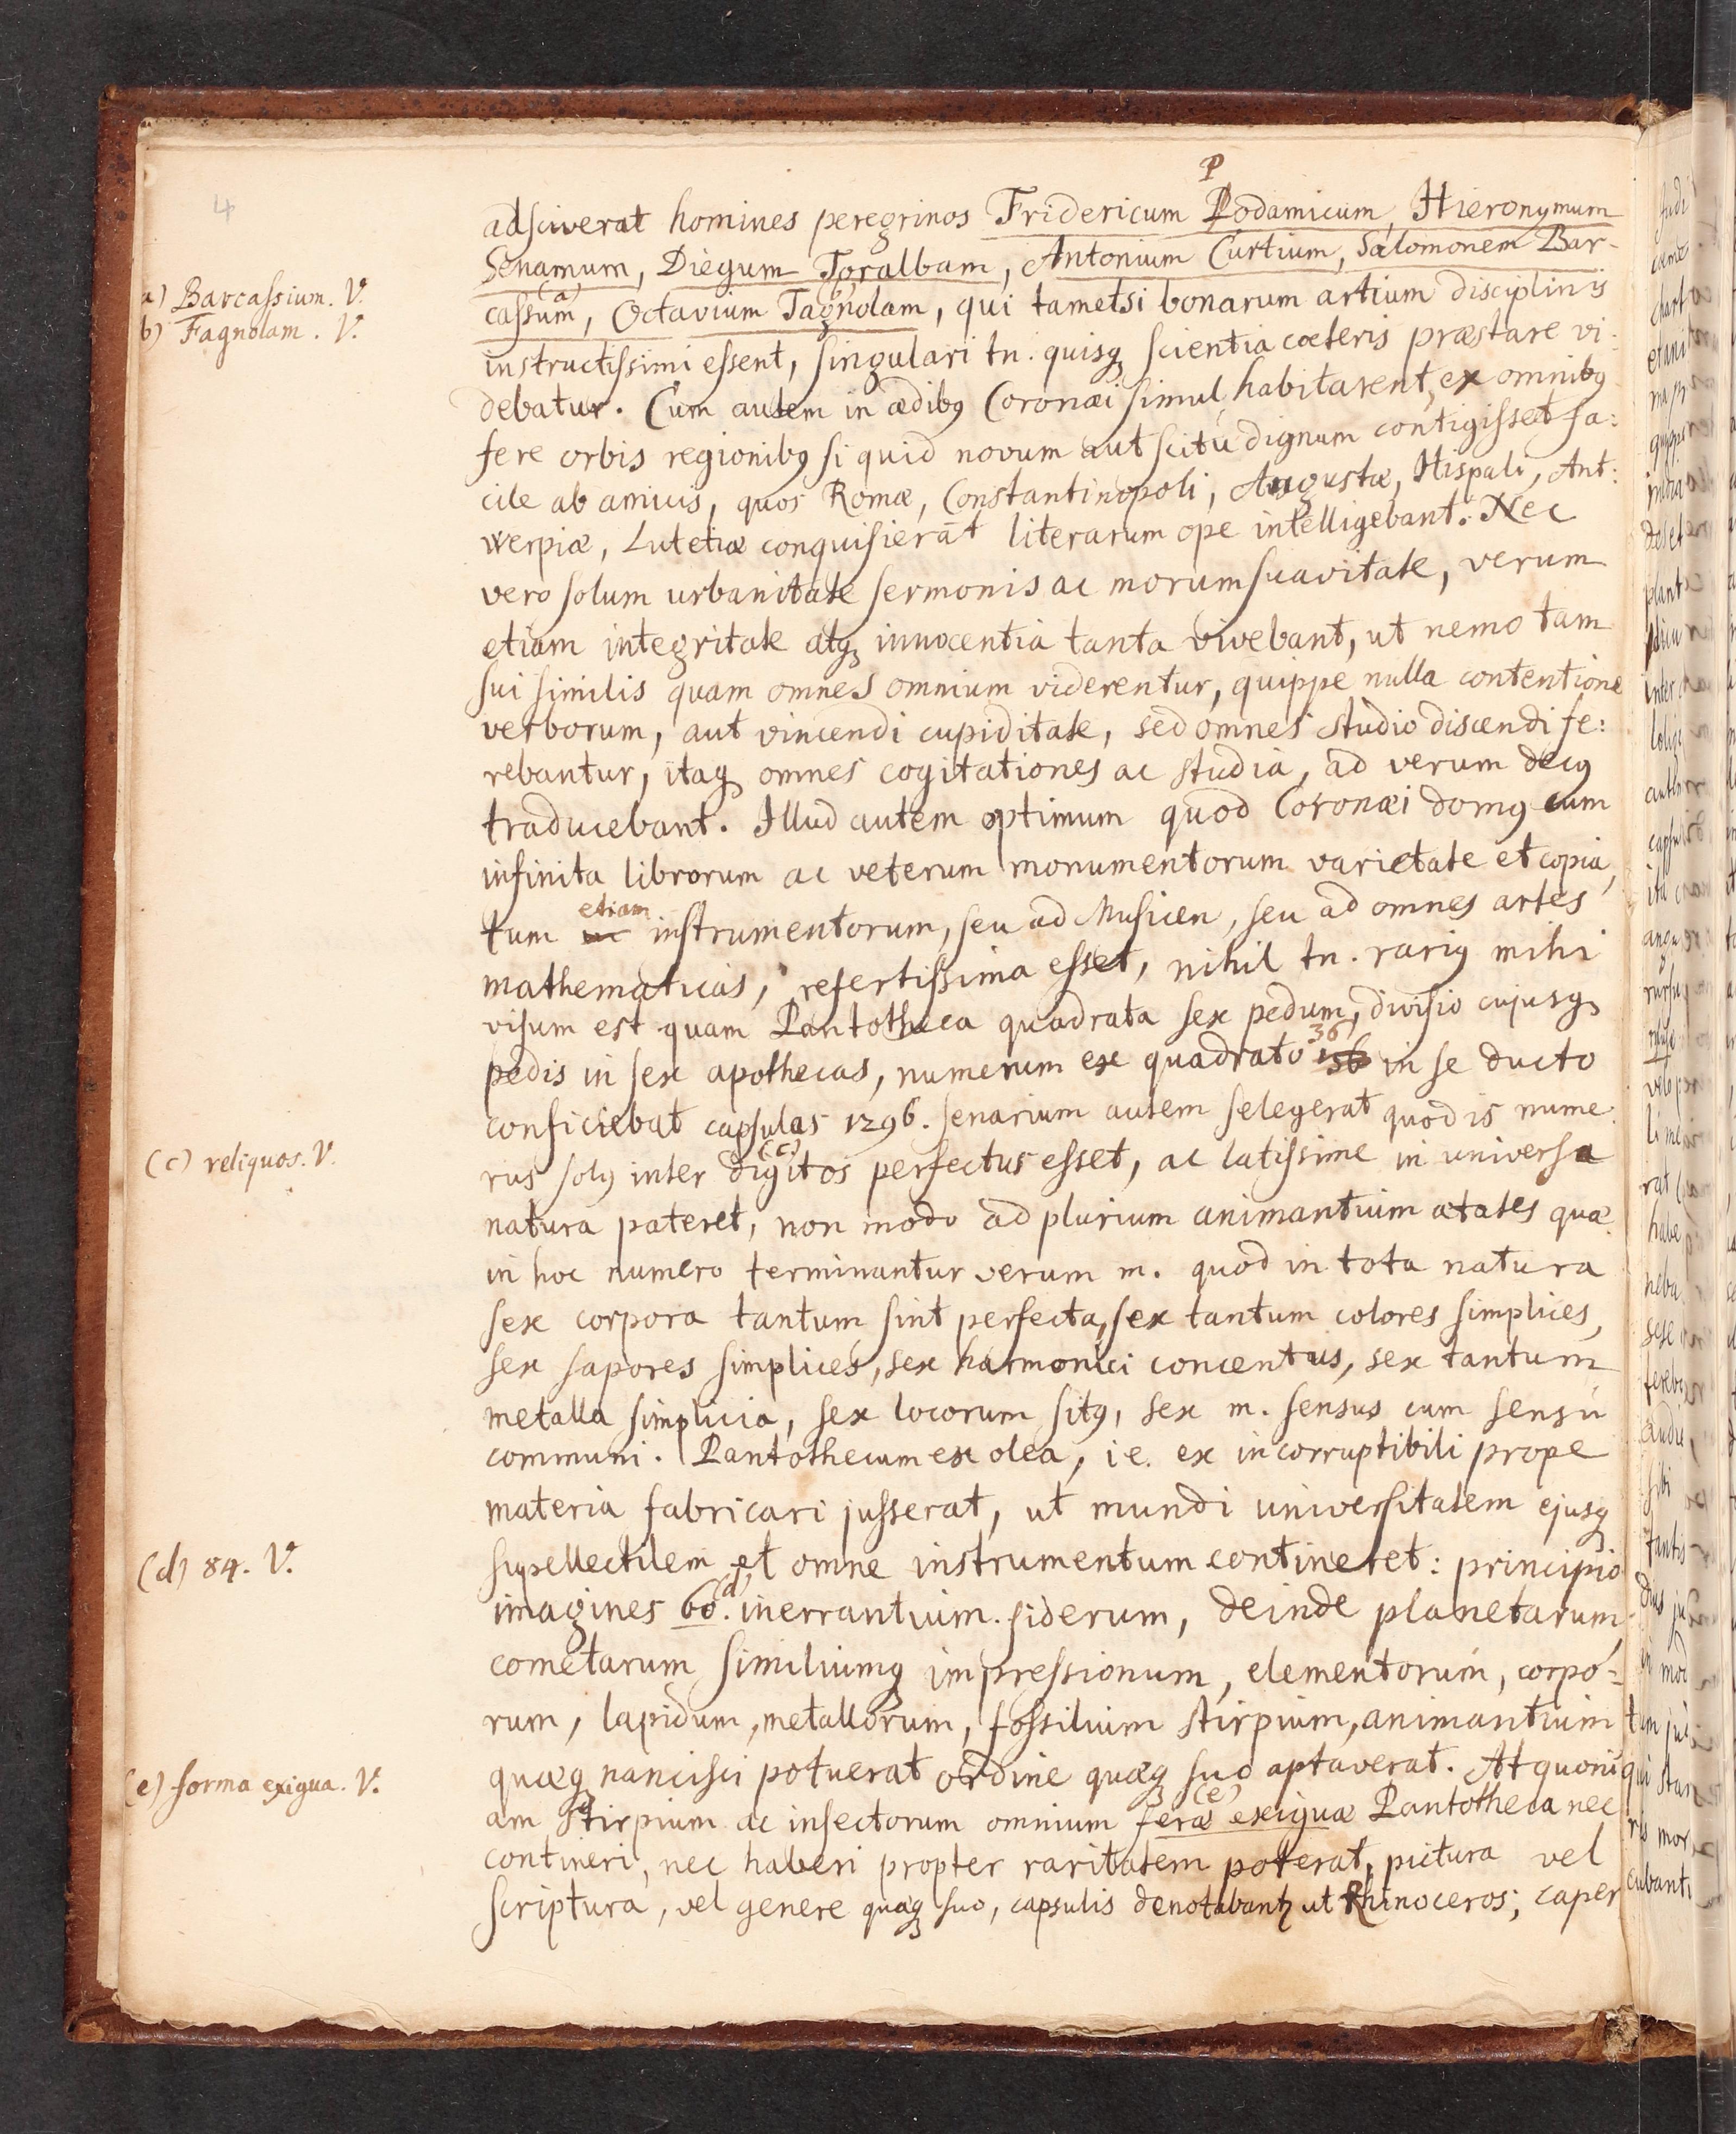 4
P
adsciverat homines peregrinos Fridericum Podamicum, Hieronymum
Senamum, Diegum Toralbam, Antonium Curtium, Salomonem Bar-
(a) (b)
cassum, Octavium Tagnolam, qui tametsi bonarum artium disciplinis
a) Barcassium. V.
b) Fagnolam. V.
instructissimi essent, singulari tn. quisq scientia cœteris præstare vi:
debatur. Cum autem in ædibq Coronæi simul habitarent, ex omnibq
fere orbis regionibq si quid novum aut scitu dignum contigisset fa:
cile ab amicis, quos Romæ, Constantinopoli, Augustæ, Hispali, Ant:
werpiæ, Lutetiæ conquisierāt literarum ope intelligebant. Nec
vero solum urbanitate sermonis ac morum suavitate, verum
etiam integritate atq innocentia tanta vivebant, ut nemo tam
sui similis quam omnes omnium viderentur, quippe nulla contentione
verborum, aut vincendi cupiditate, sed omnes studio discendi fe:
rebantur, itaq omnes cogitationes ac studia, ad verum decq
traducebant. Illud autem optimum quod Coronæi domq cum
infinita librorum ac veterum monumentorum varietate et copia,
etiam
tum instrumentorum, seu ad Musicen, seu ad omnes artes
mathematicas, refertissima esset, nihil tn. rariq mihi
visum est quam Pantotheca quadrata sex pedum, divisio cujusq
36
pedis in sex apothecas, numerum ex quadrato 156 in se ducto
conficiebat capsulas 1296. senarium autem selegerat quod is nume
(c)
rus solq inter digitos perfectus esset, ac latissime in universa
(c) reliquos. V.
natura pateret, non modo ad plurium animantium ætates quæ
in hoc numero terminantur verum m. quod in tota natura
sex corpora tantum sint perfecta, sex tantum colores simplices,
sex sapores simplices, sex harmonici concentus, sex tantum
metalla simplicia, sex locorum sitq, sex m. sensus cum sensu
communi. Pantothecum ex olea, i.e. ex incorruptibili prope
materia fabricari jusserat, ut mundi universitatem ejusq
supellectilem et omne instrumentum contineret: principio
(d)
imagines 60. inerrantium siderum, deinde planetarum,
(d) 84. V.
cometarum similiumq impressionum, elementorum, corpo-
rum, lapidum, metallorum, fossilium stirpium, animantium
quæq nancisci potuerat ordine quæq suo aptaverat. At quoni
(e)
am stirpium ac insectorum omnium feræ exiguæ Pantotheca nec
(e) forma exigua. V.
contineri, nec haberi propter raritatem poterat, pictura vel
scriptura, vel genere quæq suo, capsulis denotabantz ut Rhinoceros, caper